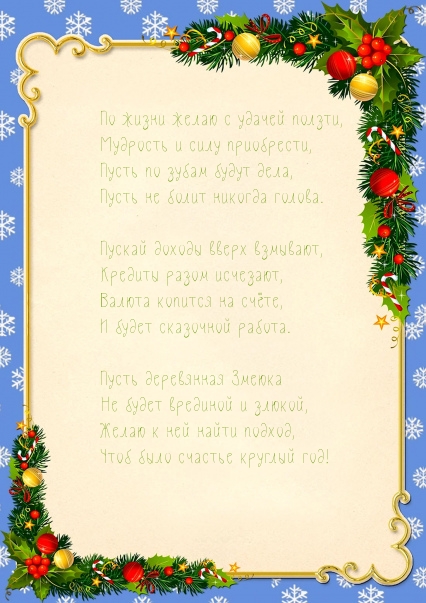 По жизни желаю с удачей ползти,
Мудрость и силу приобрести,
Пусть по зубам будут дела,
Пусть не болит никогда голова.

Пускай доходы вверх взмывают,
Кредиты разом исчезают,
Валюта копится на счёте,
И будет сказочной работа.

Пусть деревянная Змеюка
Не будет врединой и злюкой,
Желаю к ней найти подход,
Чтоб было счастье круглый год!